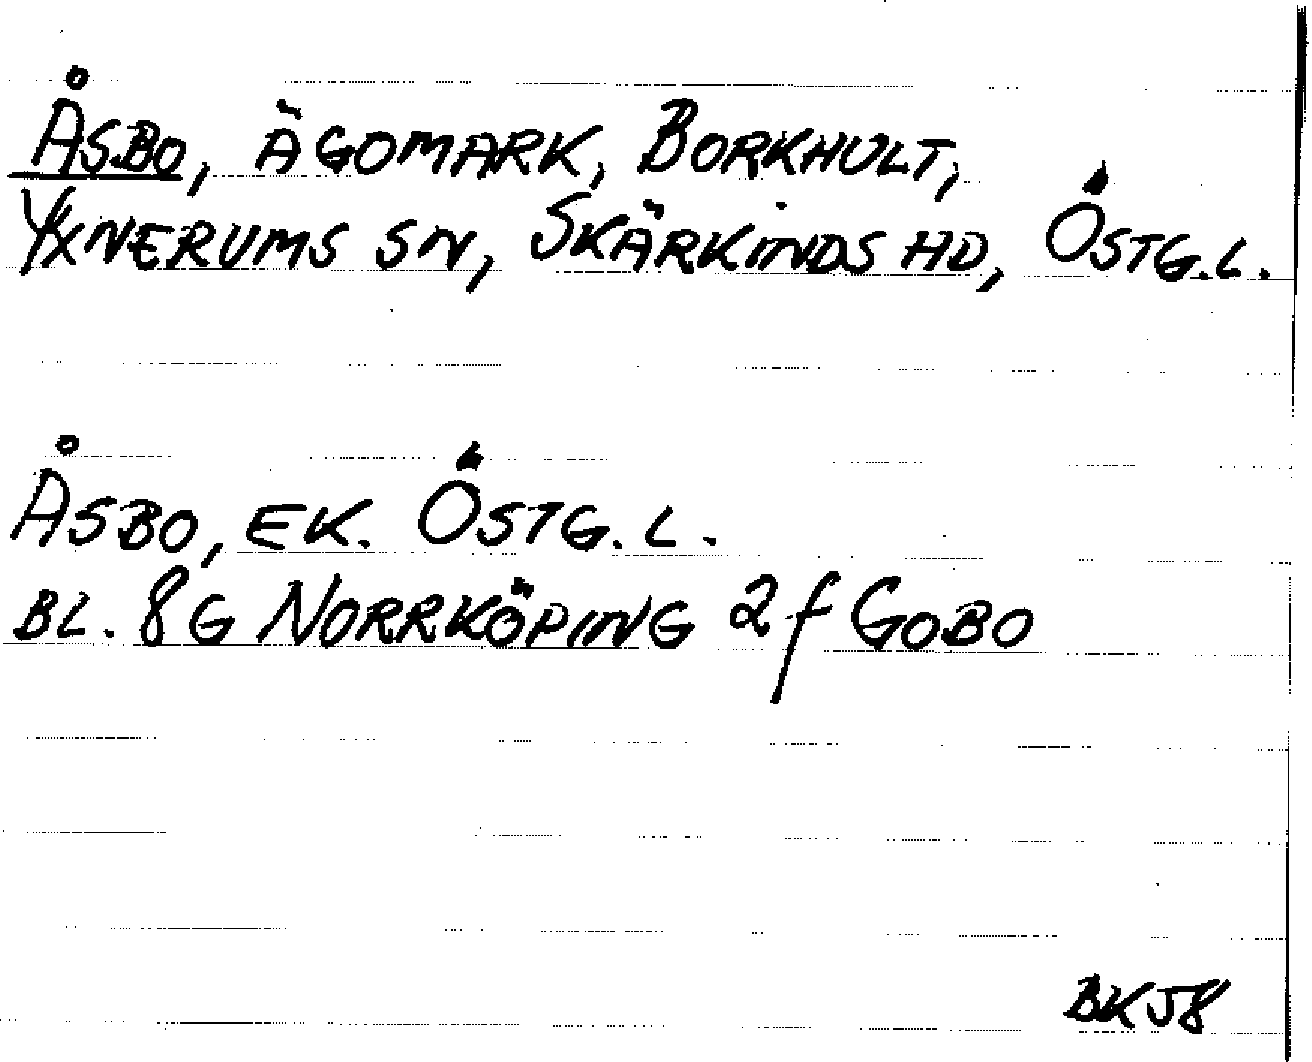 Åsbo, ÄGOMARK, BORKHULT,
YXNERUMS SN, SKÄRKINDS HD, ÖSTG.L.
ÅSBO, EK. ÖSTG. L.
BL. 8G NORRKÖPING 2f GOBO
BKJ8